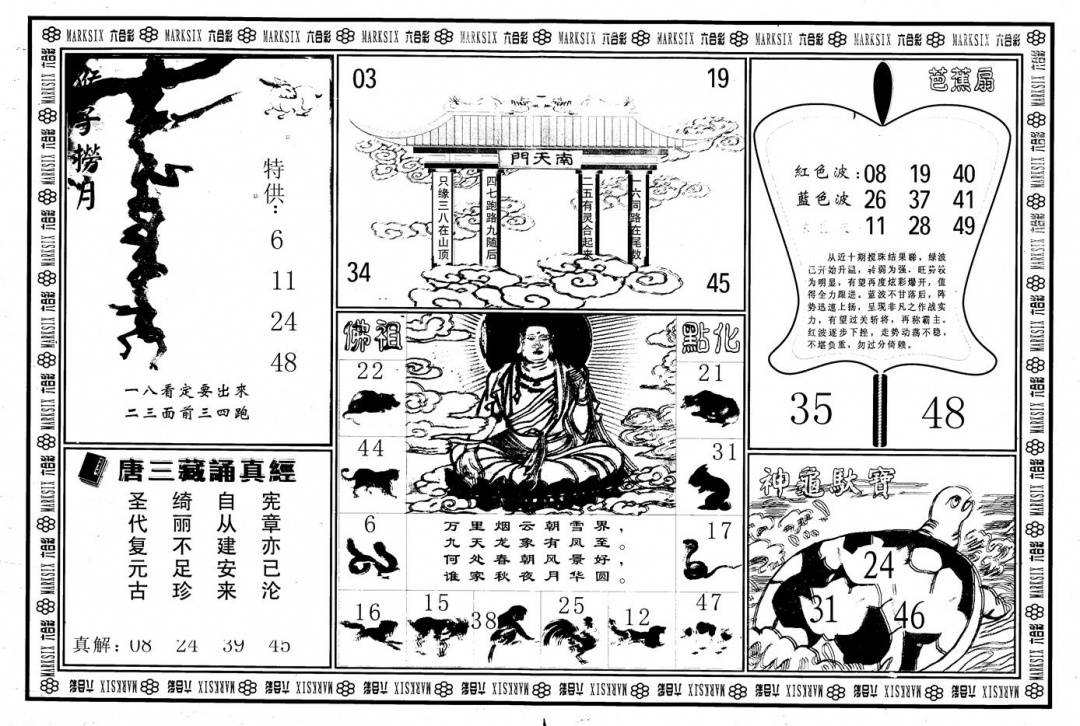 MARKSIX 六合彩 MARKSIX 六合彩 MARKSIX 六合彩 MARKSIX 六合彩 MARKSIX 六合彩 MARKSIX 六合彩 MARKSIX 六合彩 MARKSIX 六合彩 MARKSIX 六合彩 MARKSIX 六合彩
猴子撈月
特供：
6
11
24
48
一八看定要出來
二三面前三四跑
唐三藏誦真經
宪章亦已沦
自从建安来
绮丽不足珍
圣代复元古
真解：08 24 39 45
03 19
南天門
只缘三八在山顶
四七跑路九随后
二五有灵合起来
一六同路在尾数
34 45
佛祖 點化
22 21
44 31
6 17
万里烟云朝雪界，
九天龙象有凤至。
何处春朝风景好，
谁家秋夜月华圆。
16 15 38 25 12 47
芭蕉扇
紅色波：08 19 40
藍色波 26 37 41
11 28 49
从近十期搅珠结果睇，绿波
已开始升温，转弱为强，旺势较
为明显，有望再度炫彩爆开，值
得全力跟进。蓝波不甘落后，阵
势迅速上扬，呈现非凡之作战实
力，有望过关斩将，再称霸主。
红波逐步下挫，走势动荡不稳，
不堪负重，勿过分倚赖。
35 48
神龜馱寶
24
31 46